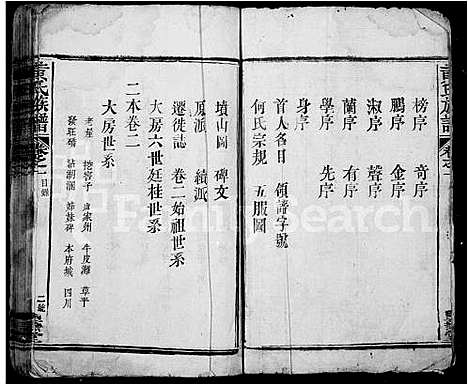 黄氏族譜
卷之一
榜序 奇序
鵬序 金序
淑序 聲序
蘭序 有序
學序 先序
身序
首人名目 領譜字號
何氏宗規 五服圖
墳山圖 碑文
原派 續派
遷徙誌 卷二始祖世系
大房六世廷桂世系
二本卷二
大房世系
盧家州 牛皮灘 草平
姊妹碑 本府城 四川
黄氏族譜
卷之一
目錄
FamilySearch